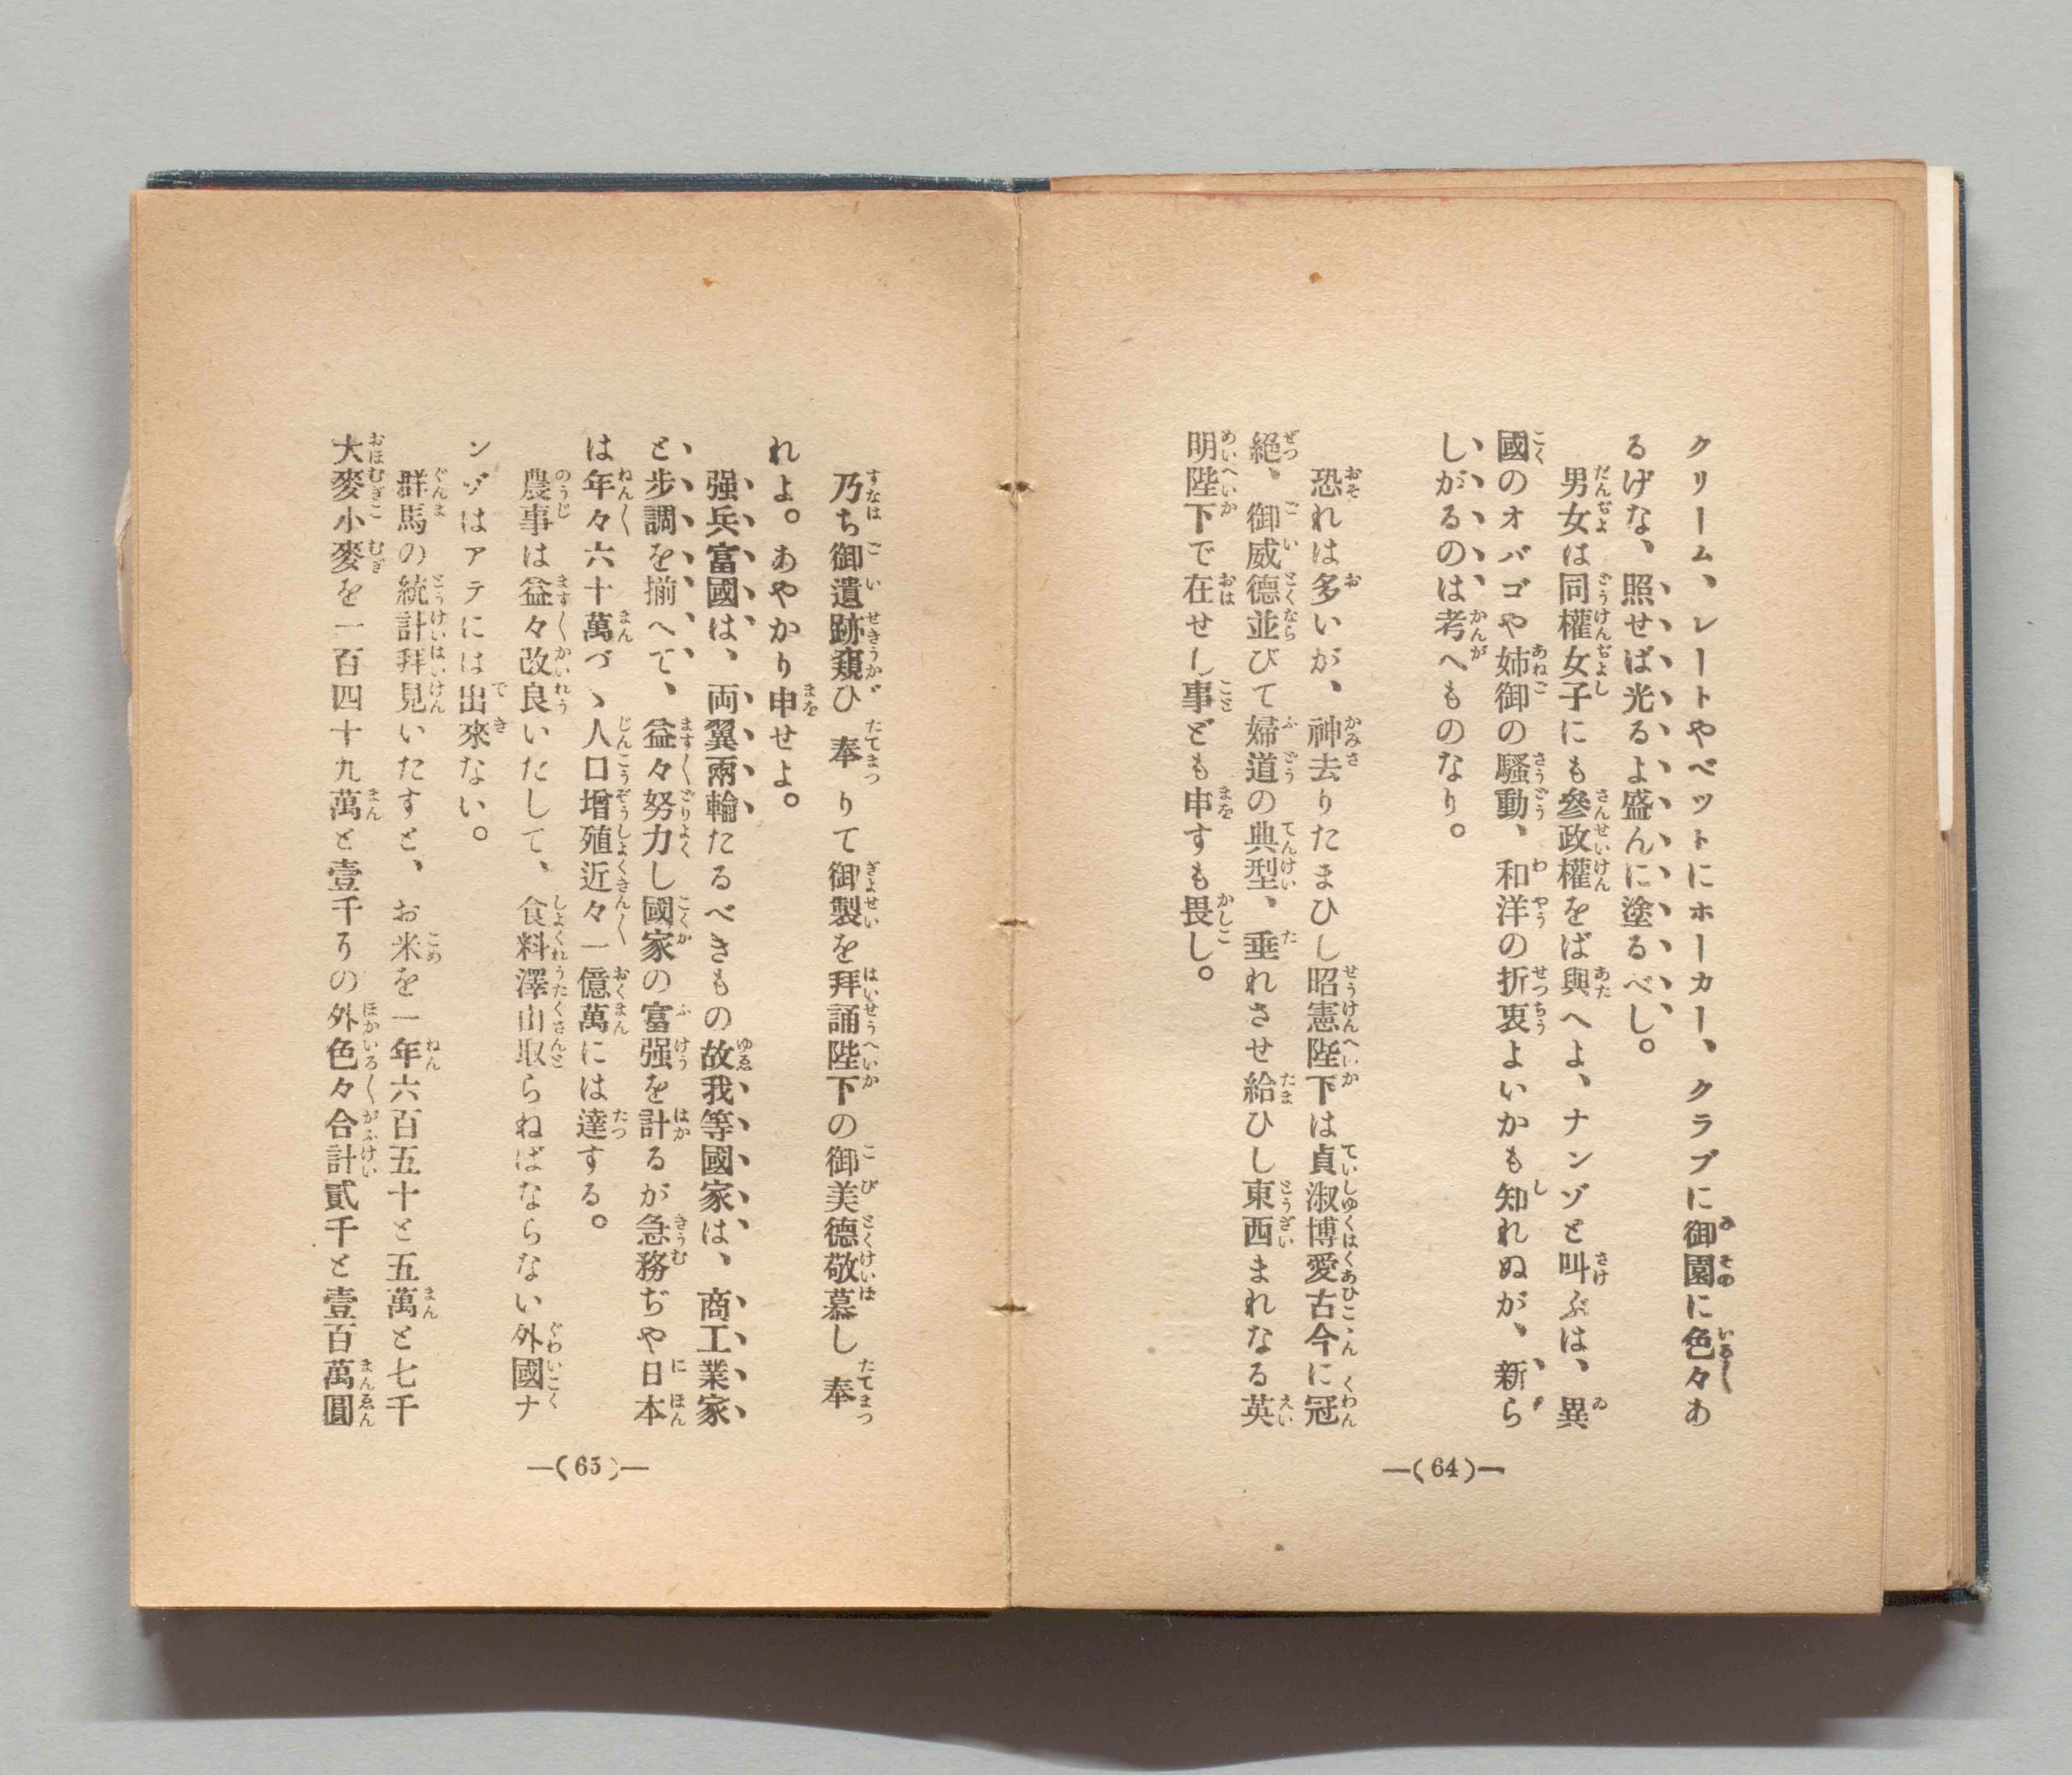 クリーム、レートやベットにホーカー、クラブに御園に色々あ
るげな、照せば光るよ盛んに塗るべし。
男女は同權女子にも參政權をば與へよ、ナンゾと叫ぶは、異
國のオバゴや姉御の騷動、和洋の折衷よいかも知れぬが、新ら
しがるのは考へものなり。
恐れは多いが、神去りたまひし昭憲陛下は貞淑博愛古今に冠
絕、御威德並びて婦道の典型、垂れさせ給ひし東西まれなる英
明陛下で在せし事ども申すも畏し。
—(64)—
乃ち御遺跡窺ひ奉りて御製を拜誦陛下の御美德敬慕し奉
れよ。あやかり申せよ。
强兵富國は、両翼兩輪たるべきもの故我等國家は、商工業家
と步調を揃へて、益々努力し國家の富强を計るが急務ぢや日本
は年々六十萬づゝ人口增殖近々一億萬には達する。
農事は益々改良いたして、食料澤山取らねばならない外國ナ
ンゾはアテには出來ない。
群馬の統計拜見いたすと、お米を一年六百五十と五萬と七千
大麥小麥を一百四十九萬と壹千りの外色々合計貳千と壹百萬圓
—(65)—